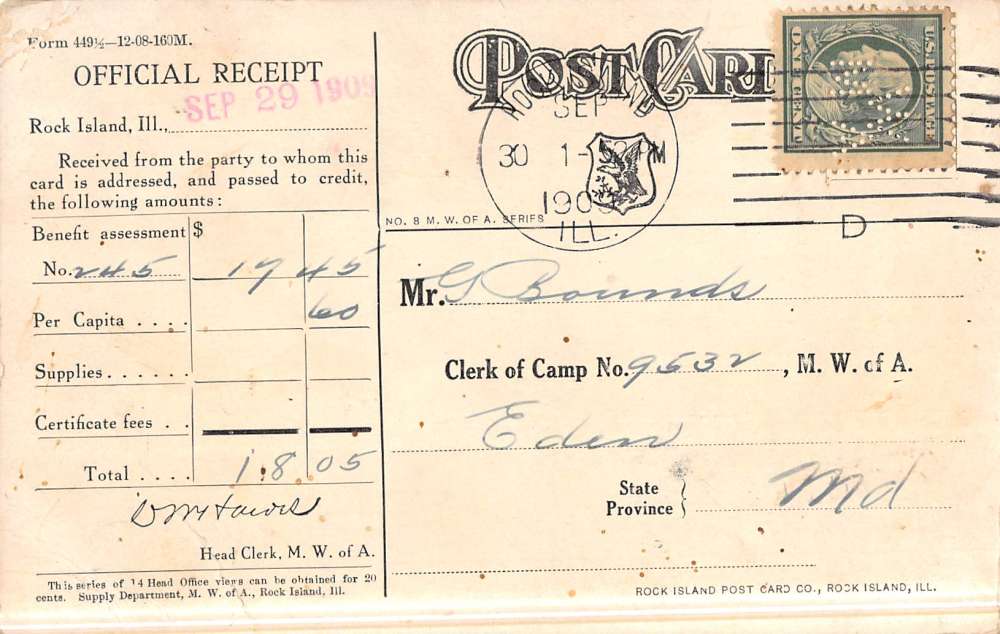 Form 449½—12-08-160M.
OFFICIAL RECEIPT
SEP 29 1909
Rock Island, Ill.,
Received from the party to whom this
card is addressed, and passed to credit,
the following amounts:
Benefit assessment $
No. 245 17 45
Per Capita .... 60
Supplies......
Certificate fees ..
Total .... 18 05
Head Clerk, M. W. of A.
This series of 14 Head Office views can be obtained for 20
cents. Supply Department, M. W. of A., Rock Island, Ill.
POST CARD
ROCK ISLAND
SEP
30 1- M
1909
ILL.
D
U.S. POSTAGE
ONE CENT
NO. 8 M. W. OF A. SERIES
Mr. G Bounds
Clerk of Camp No. 9532, M. W. of A.
Eden
State
Province } Md
ROCK ISLAND POST CARD CO., ROCK ISLAND, ILL.